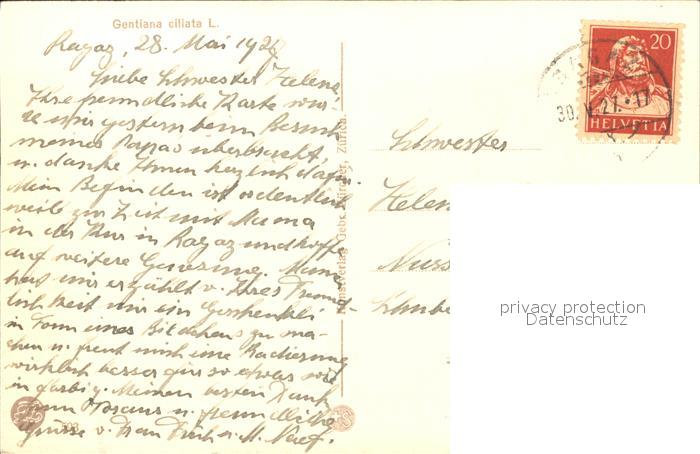 Gentiana ciliata L.
Ragaz, 28. Mai 192
Liebe Schwester Helene
Ihre freundliche Karte wur-
de mir gestern beim Besuch
meines Papas überbracht,
u. danke Ihnen herzlich dafür.
Mein Befinden ist ordentlich
weile zur Zeit mit Mama
in der Kur in Ragaz und hoffe
auf weitere Genesung. Mama
hat mir erzählt v. Ihrer Freund-
lichkeit mir ein Geschenkli
in Form eines Bildchens zu ma-
chen u. freut mich eine Radierung
wirklich besser als so etwas
in farbig. Meinen besten Dank
zum Voraus u. freundliche
Grüsse v. Frau u. M. Naef.
Kunstverlag Gebr. Zürich.
20
HELVETIA
30.V.21.-17
Schwester
Helen
privacy protection
Datenschutz